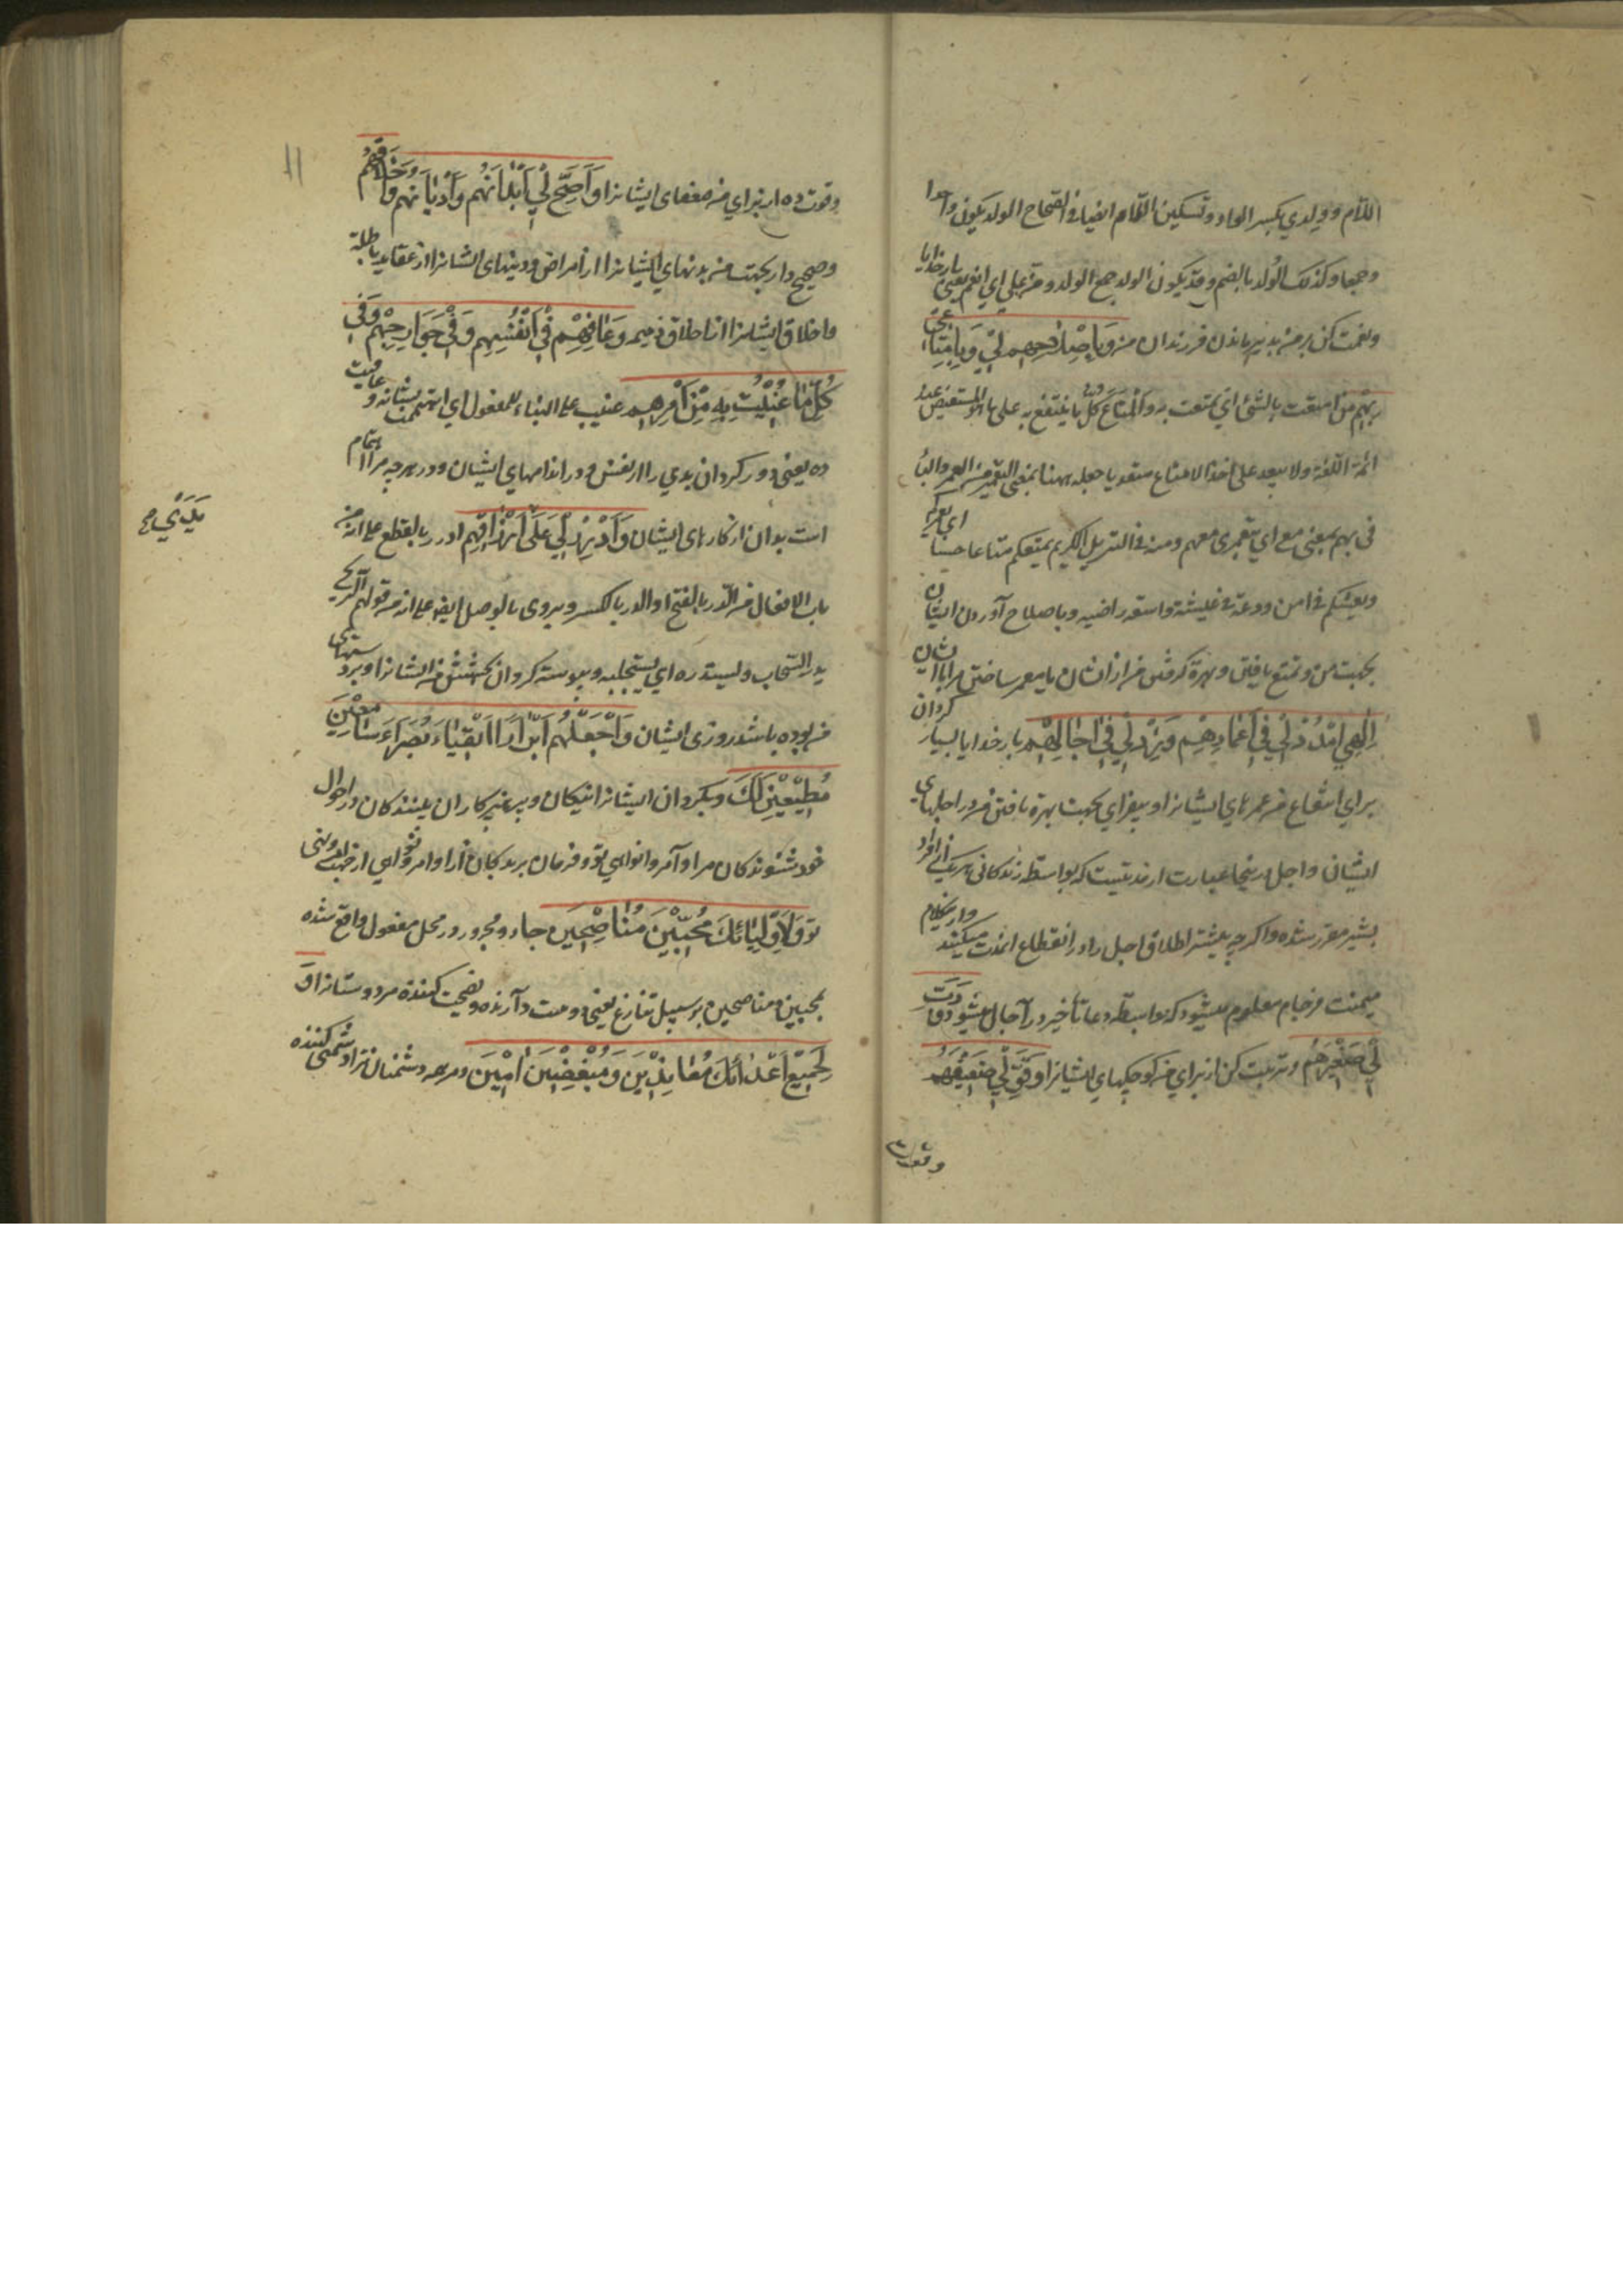 اللام و ولدي بكسر الواو وتسكين اللام ايضا في الصحاح الولد يكون واحدا
وجمعا وكذلك الولد بالضم وقد يكون الولد جمع الولد ومن علي اي انعم يعني بار خدايا
ونعمت كن بر من بدير ماندن فرزندان من وَبِاِصْلاحِهِم لي وَبِاِمتاعي
بِهِم من امتعت بالشئ اي تمتعت به والمتاع كل ما ينتفع به على ما هو المستفيض عند
ائمة اللغة ولا يبعد على اخذ الامتاع متعديا جعله ههنا بمعنى التعمير من العمر والباء
في بهم بمعنى مع اي بتعميري معهم ومنه في التنزيل الكريم يمتعكم متاعا حسنا اي يعمركم
ويعيشكم في امن ودعة في عيشة واسعة راضيه وباصلاح آوردن ايشان
بجهت من وتمتع يافتن وبهره گرفتن من از ايشان يا معمر ساختن مرا با ايشان
اِلهي اُمْدُدْ لي في اَعْمارِهِم وَزِدْ لي في اجالِهِم بار خدايا بسيار گردان
براي انتفاع من عمرهاي ايشانرا وبيفزاي بجهت بهره يافتن من در اجلهاي
ايشان واجل اينجا عبارت از مدتيست كه بواسطه زندكاني هر يك از افراد
بشر مقرر شده واكرچه بيشتر اطلاق اجل را در انقطاع انمدت ميكنند واز كلام
ميمنت فرجام معلوم ميشود كه بواسطه دعا تأخير در آجال ميشود وَرَبِّ
لي صَغيرَهُم وتربيت كن از براي من كوچكهاي ايشانرا وَقَوِّ لي ضَعيفَهُم
وقوت
11
وقوت ده از براي من ضعفاى ايشانرا وَاَصِحَّ لي اَبْدانَهُم وَاَدْيانَهُم وَاَخْلاقَهُم
وصحيح دار بجهت من بدنهاي ايشانرا از امراض ودينهاى ايشانرا از عقايد باطله
واخلاق ايشانرا از اخلاق ذميمه وَعافِهِم في اَنْفُسِهِم وَفي جَوارِحِهِم وَفي
كُلِّ ما عُنيتُ بِهِ مِنْ اَمْرِهِم عنيت على البناء للمفعول اي اهتممت بشانه وعافيت
ده يعني دور كردان بدي را از نفس ودر اندامهاي ايشان ودر هرچه مرا اهتمام
است بدان از كارهاى ايشان وَاَدْرِرْ لي عَلى اَرْزاقَهُم ادرر بالقطع على انه من
باب الافعال من الدر بالفتح او الدر بالكسر ويروى بالوصل ايضا على انه من قولهم الريح
يدر السحاب ويستدره اي يستجلبه وپيوسته كردان
من بوده باشد روزى ايشان وَاجْعَلْهُم اَبْرارًا اَتْقِياءَ بُصَراءَ سامِعينَ
مُطيعينَ لَكَ وبكردان ايشانرا نيكان وپرهيزكاران بينندكان در احوال
خود شنوندكان مر اوامر ونواهي تو وفرمان برندكان
تو وَلِاَوْلِيائِكَ مُحِبّينَ مُناصِحينَ جار ومجرور در محل مفعول واقع شده
محبين ومناصحين بر سبيل تنازع يعني دوست دارنده ونصيحت كننده مر دوستانرا وَ
لِجَميعِ اَعْدائِكَ مُعانِدينَ وَمُبْغِضينَ امينَ ومر همه دشمنان ترا دشمني كننده